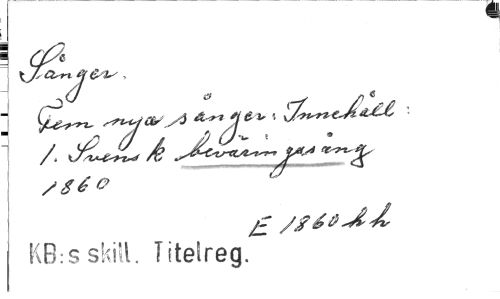 Sånger.
Fem nya sånger: Innehåll:
1. Svensk beväringasång
1860
E 1860 hh
KB:s skill. Titelreg.